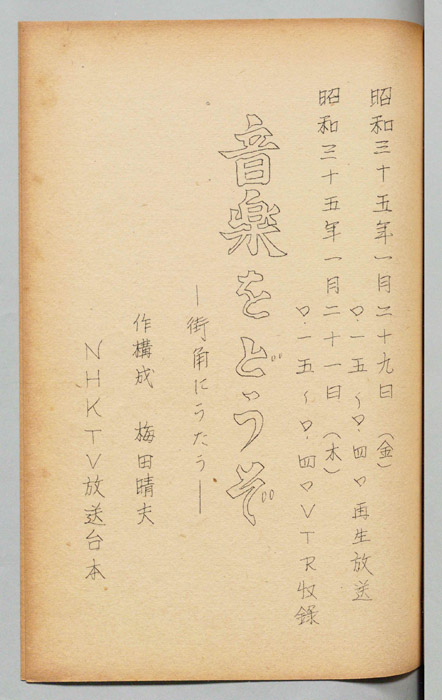 昭和三十五年一月二十九日(金)
〇・一五~〇・四〇再生放送
昭和三十五年一月二十一日(木)
〇・一五~〇・四〇VTR収録
音楽をどうぞ
―街角にうたう―
作構成 梅田晴夫
NHKTV放送台本